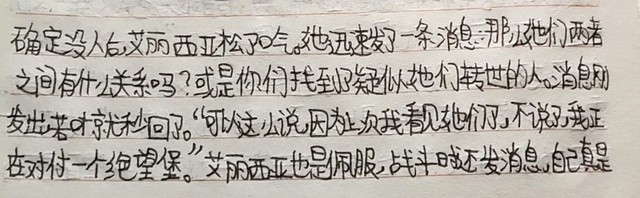 确定没人后,艾丽西亚松了口气。她迅速发了一条消息:那么她们两者
之间有什么关系吗?或是你们找到了疑似她们转世的人。消息刚
发出,若叶就秒回了。“可以这么说,因为上次我看见她们了,不说了,我正
在对付一个绝望堡。”艾丽西亚也是佩服,战斗时还发消息,自己真是